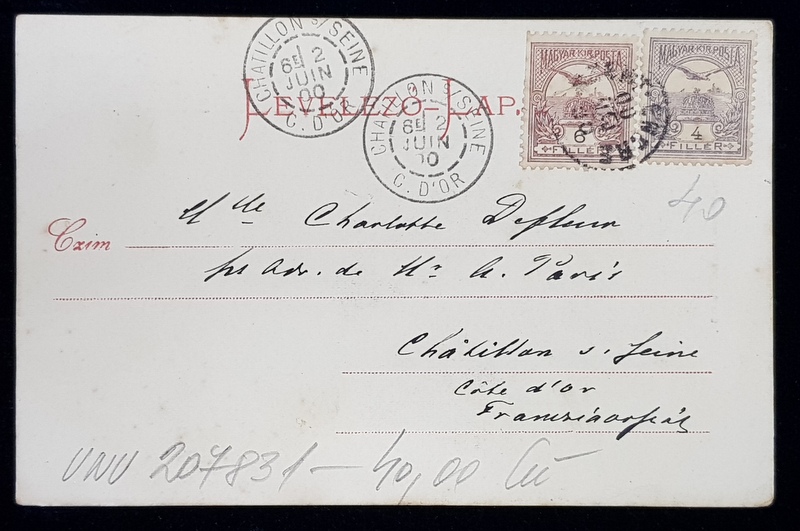 CHATILLON S/SEINE
6E 2
JUIN
00
C. D'OR
CHATILLON S/SEINE
6E 2
JUIN
00
C. D'OR
LEVELEZŐ-LAP.
MAGYAR·KIR·POSTA
6
FILLÉR
MAGYAR·KIR·POSTA
4
FILLÉR
40
Czim
Mlle Charlotte Defleur
pr adr. de Mr A. Paris
Châtillon s. Seine
Côte d'or
Francziaország
VNV 207831 - 40,00